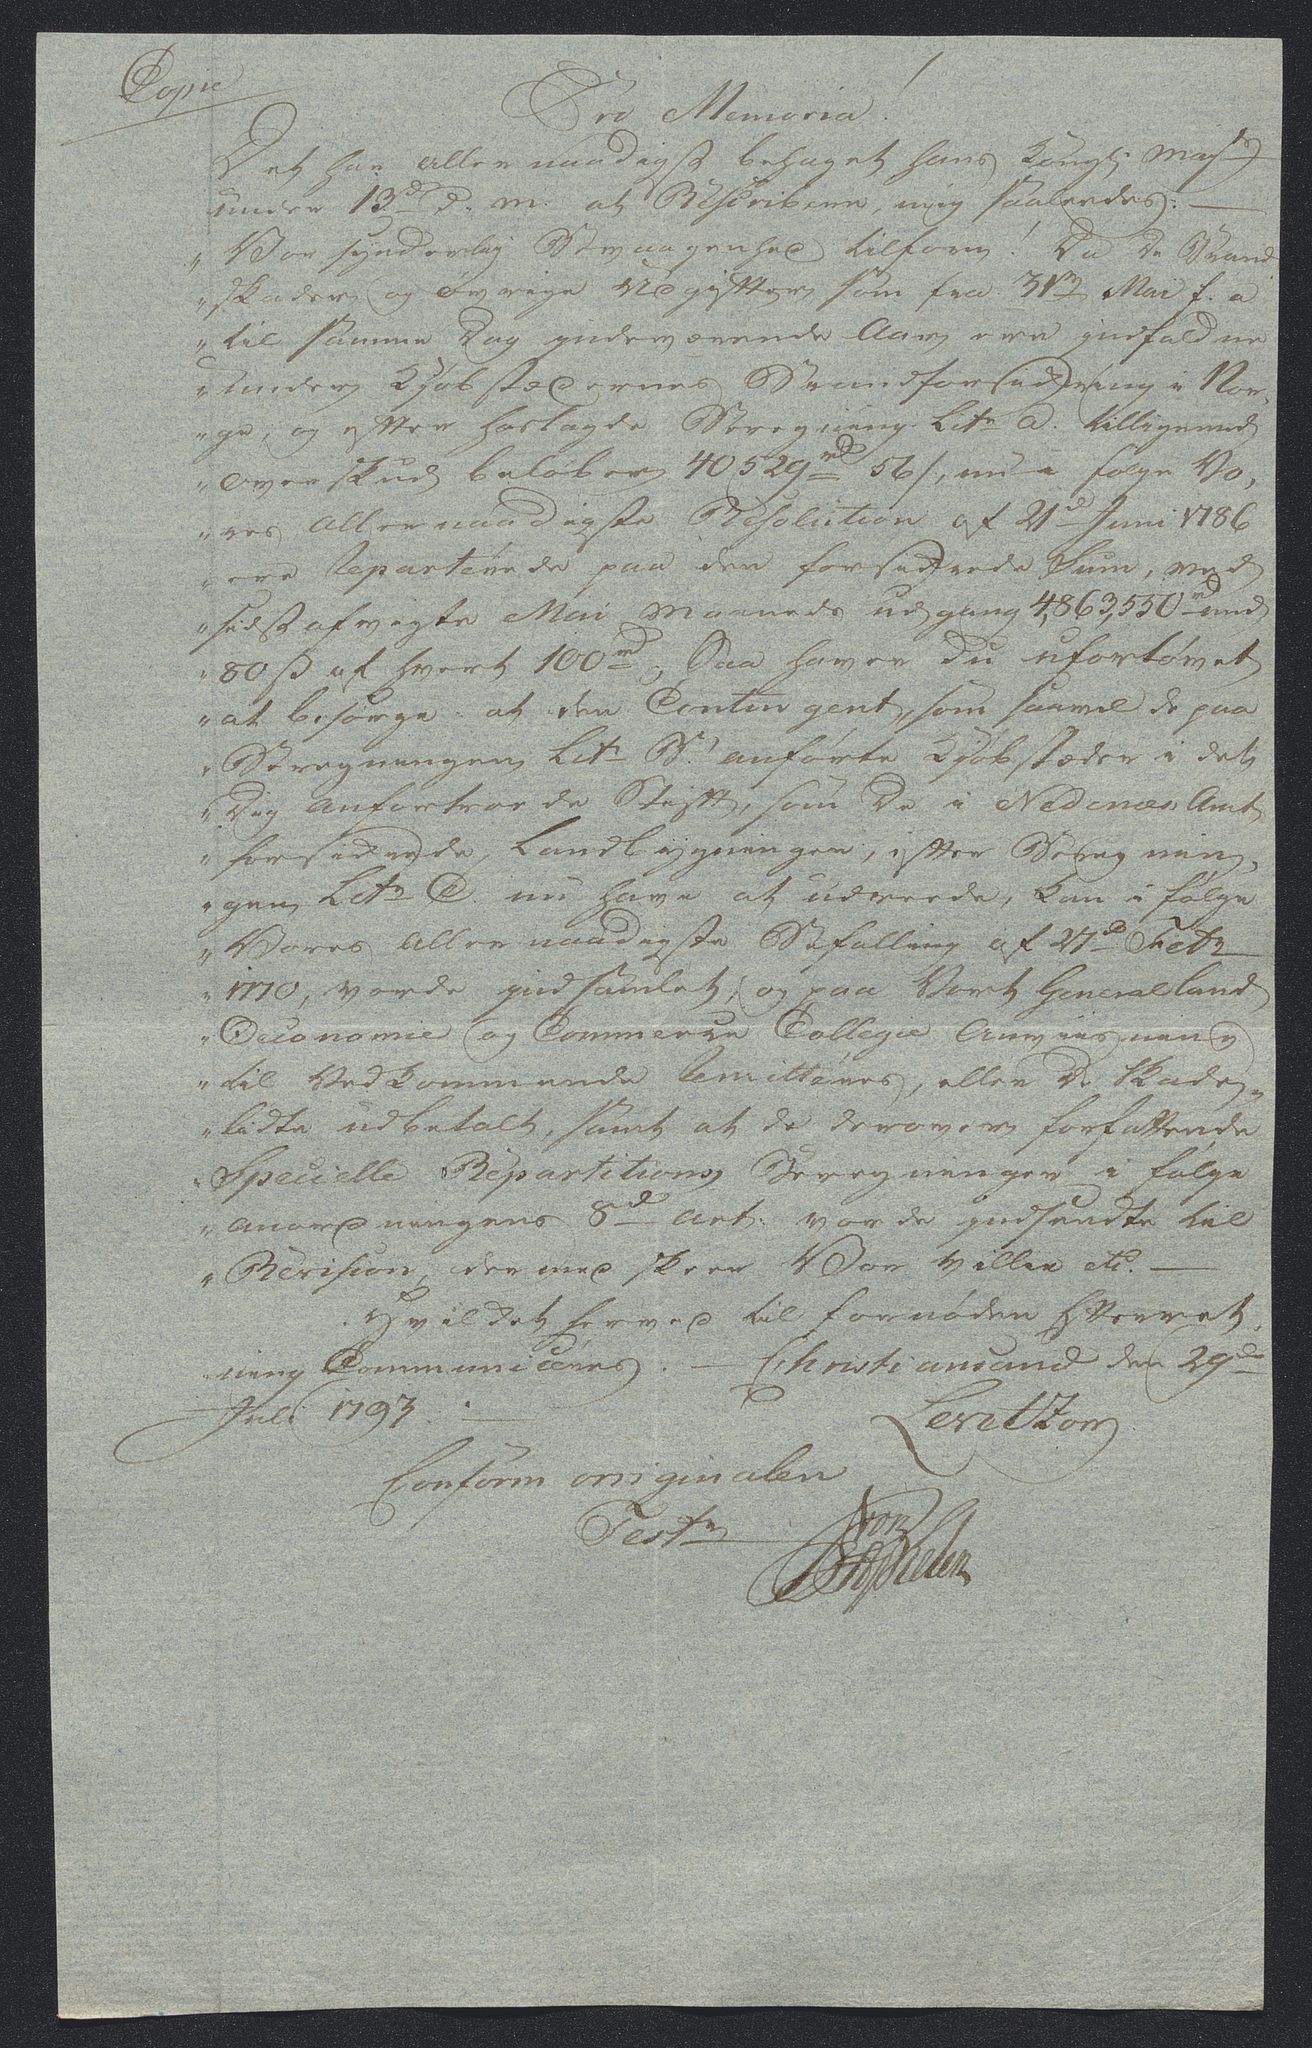 Copie
Pro Memoria!
Det har allernaadigst behaget hans Kongl: May:t
under 13de d. m. at Rescribere mig saaledes: —
„Vor synderlig Bevaagenhed tilforn! Da De Brand
„skader og øvrige Udgifter som fra 31te Mai f. a
„til samme Dag indeværende Aar ere indfaldne
„under Kjøbstædernes Brandforsikring i Nor,
„ge, og efter hoslagde Beregning Litr a. tilligemed
„overskud beløber 40529 rd 56 s, nu i følge Vo,
„res allernaadigste Resolution af 21de Juni 1786
„ere reparterede paa den forsikrede Sum, ved
„sidst afvigte Mai Maaneds udgang 4,863,550 rd med
„80 s af hvert 100 rd, Saa haver du ufortøvet
„at besørge at den Contingent, som saavel de paa
„Beregningen Litr B. anførte Kjøbstæder i det
„Dig anfortroede Stift, som De i Nedenes Amt
„forsikrede Landbygninger, efter Beregnin,
„gen Litr C. nu have at udreede, kan i følge
„Vores allernaadigste Befalling af 27de Febr
„1770, vorde indsamlet, og paa Vort General Land
„Oeconomie og Commerce Collegie Anviisning
„til Vedkommende remitteres, eller De Skade,
„lidte udbetalt, samt at de derover forfattende
„Specielle Repartitions Beregninger i følge
„anordningens 8de art: vorde indsendte til
„Revision, dermed skeer Vor Villie etc. —
Hvilket herved til fornøden Efterret,
ning Communiceres. — Christiansand den 29de
Juli 1793. —
Levetzow
Conform originalen
Test: